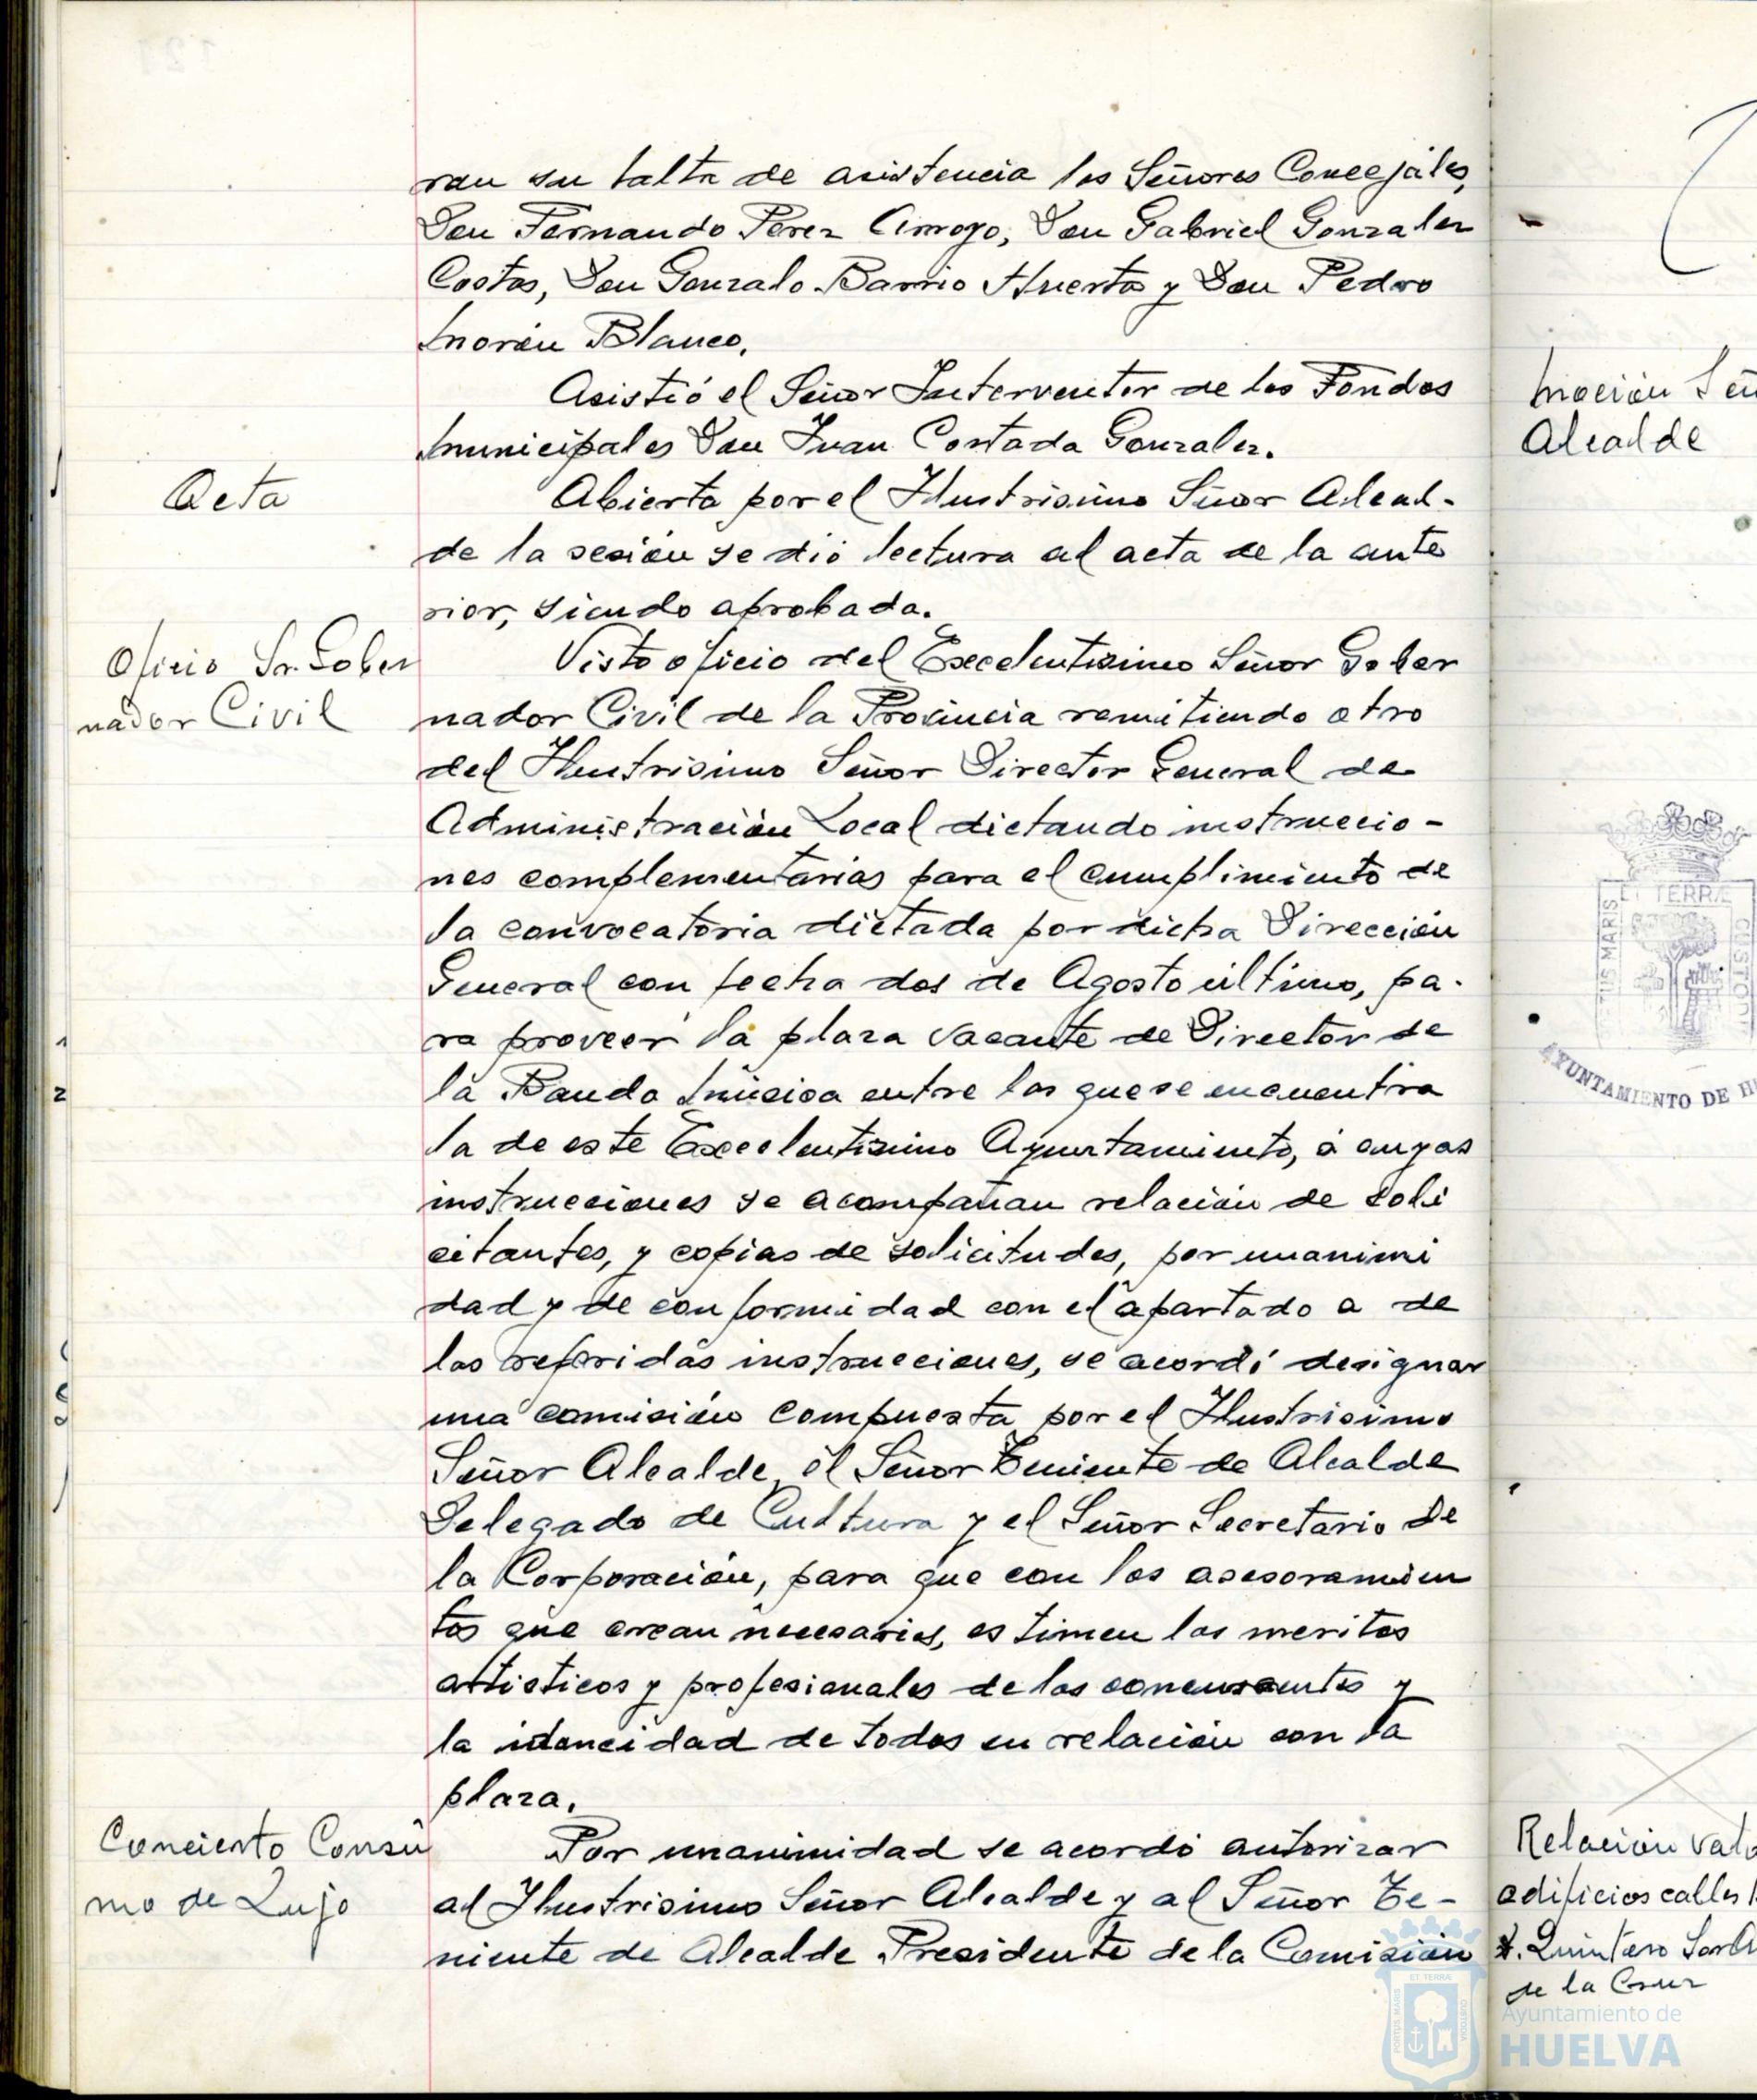 ran su falta de asistencia los Señores Concejales,
Don Fernando Perez Arroyo, Don Gabriel Gonzalez
Costas, Don Gonzalo Barrio Huerta y Don Pedro
Morón Blanco.
Asistió el Señor Interventor de los Fondos
Municipales Don Juan Contada Gonzalez.
Acta
Abierta por el Ilustrisimo Señor Alcal-
de la sesión se dió lectura al acta de la ante
rior, siendo aprobada.
Oficio Sr. Gober
nador Civil
Visto oficio del Excelentisimo Señor Gober
nador Civil de la Provincia remitiendo otro
del Ilustrisimo Señor Director General de
Administración Local dictando instruccio-
nes complementarias para el cumplimiento de
la convocatoria dictada por dicha Dirección
General con fecha dos de Agosto último, pa-
ra proveer la plaza vacante de Director de
la Banda Música entre las que se encuentra
la de este Excelentisimo Ayuntamiento, á cuyas
instrucciones se acompañan relación de soli
citantes, y copias de solicitudes, por unanimi
dad y de conformidad con el apartado a de
las referidas instrucciones, se acordó designar
una comisión compuesta por el Ilustrisimo
Señor Alcalde, el Señor Teniente de Alcalde
Delegado de Cultura y el Señor Secretario de
la Corporación, para que con los asesoramien
tos que crean necesarios, estimen los meritos
artisticos y profesionales de los concursantes y
la idoneidad de todos en relación con la
plaza.
Concierto Consu
mo de Lujo
Por unanimidad se acordó autorizar
al Ilustrisimo Señor Alcalde y al Señor Te-
niente de Alcalde Presidente de la Comisión
Moción Señ
Alcalde
ET TERRA
TUS MARIS
CUSTODI
AYUNTAMIENTO DE H
Relación valo
edificios calles
Quintero
de la Cruz
Ayuntamiento de
HUELVA